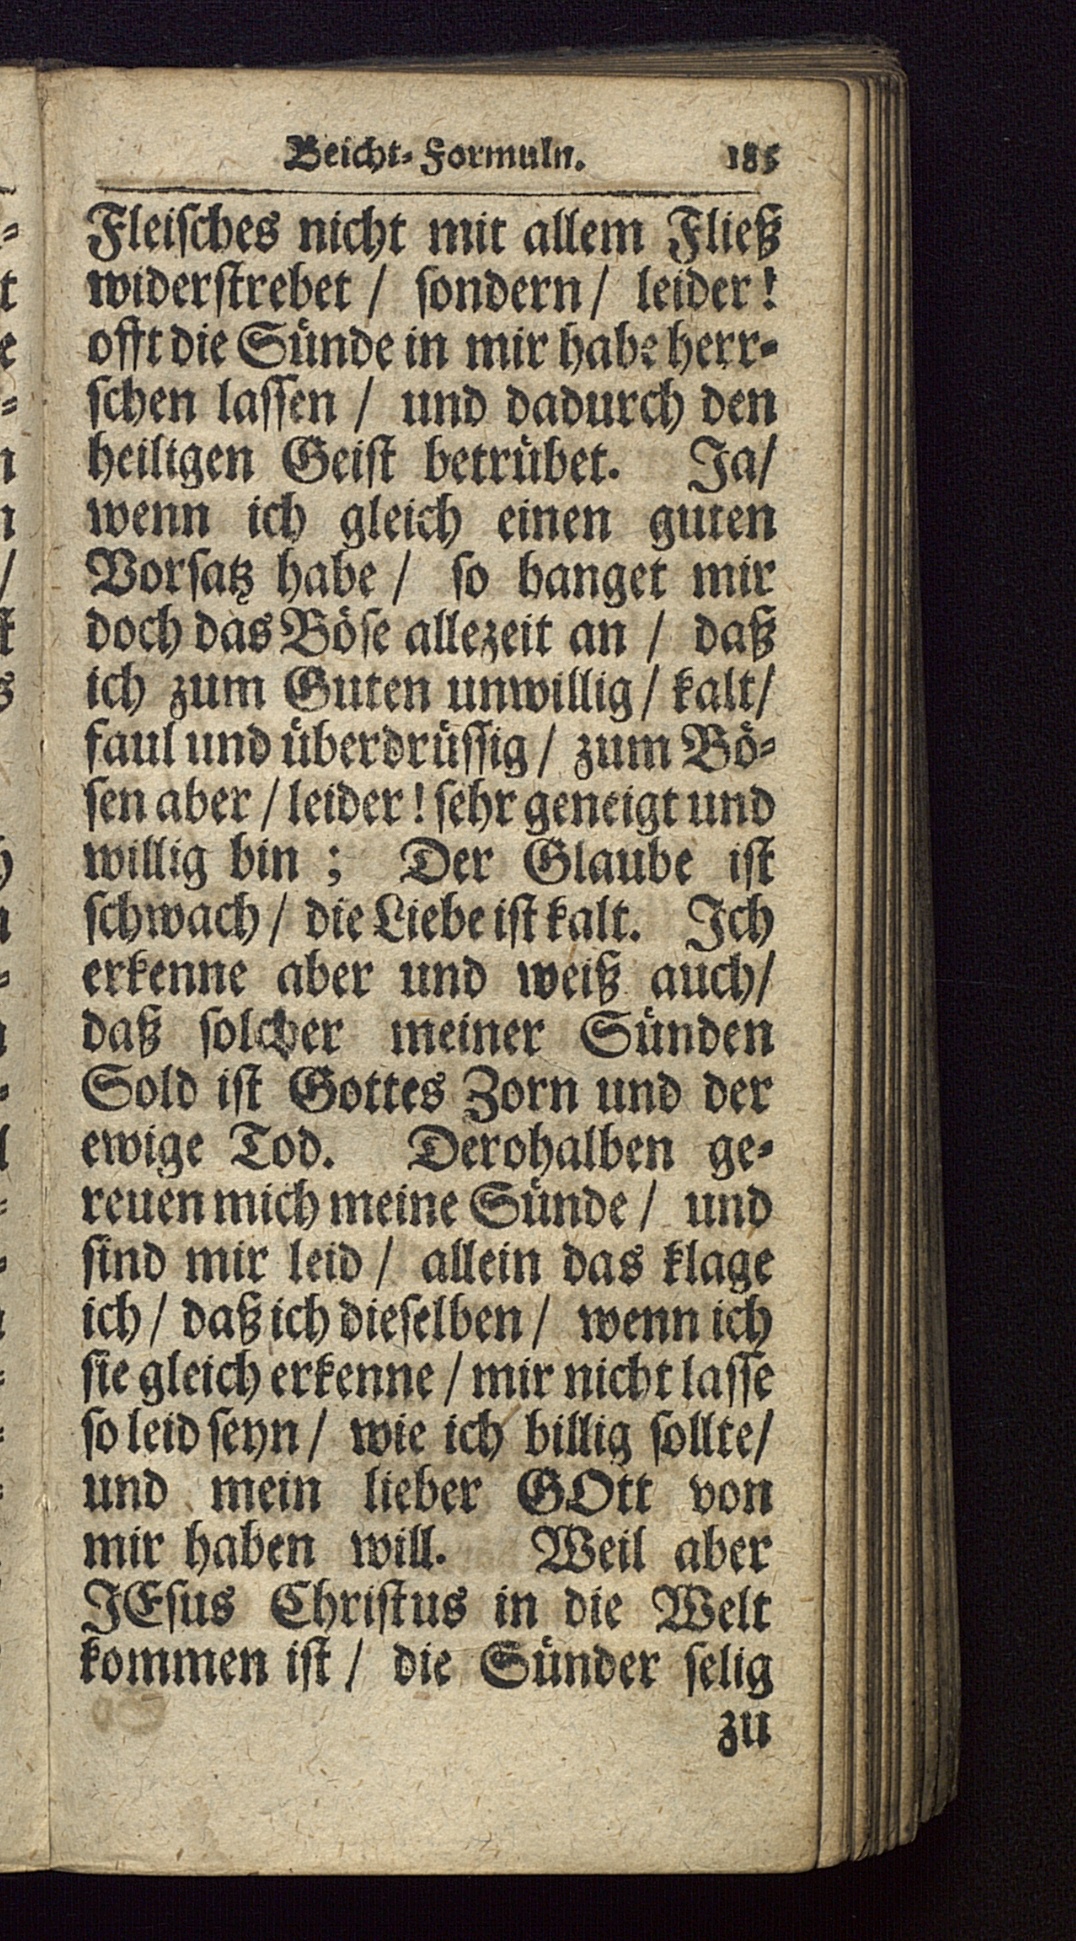 Beicht-Formuln. 185
Fleisches nicht mit allem Fließ
widerstrebet / sondern / leider!
offt die Sünde in mir habe herr-
schen lassen / und dadurch den
heiligen Geist betrübet. Ja /
wenn ich gleich einen guten
Vorsatz habe / so hanget mir
doch das Böse allezeit an / daß
ich zum Guten unwillig / kalt /
faul und überdrüssig / zum Bö-
sen aber / leider! sehr geneigt und
willig bin ; Der Glaube ist
schwach / die Liebe ist kalt. Ich
erkenne aber und weiß auch /
daß solcher meiner Sünden
Sold ist Gottes Zorn und der
ewige Tod. Derohalben ge-
reuen mich meine Sünde / und
sind mir leid / allein das klage
ich / daß ich dieselben / wenn ich
sie gleich erkenne / mir nicht lasse
so leid seyn / wie ich billig sollte /
und mein lieber GOtt von
mir haben will. Weil aber
JEsus Christus in die Welt
kommen ist / die Sünder selig
zu